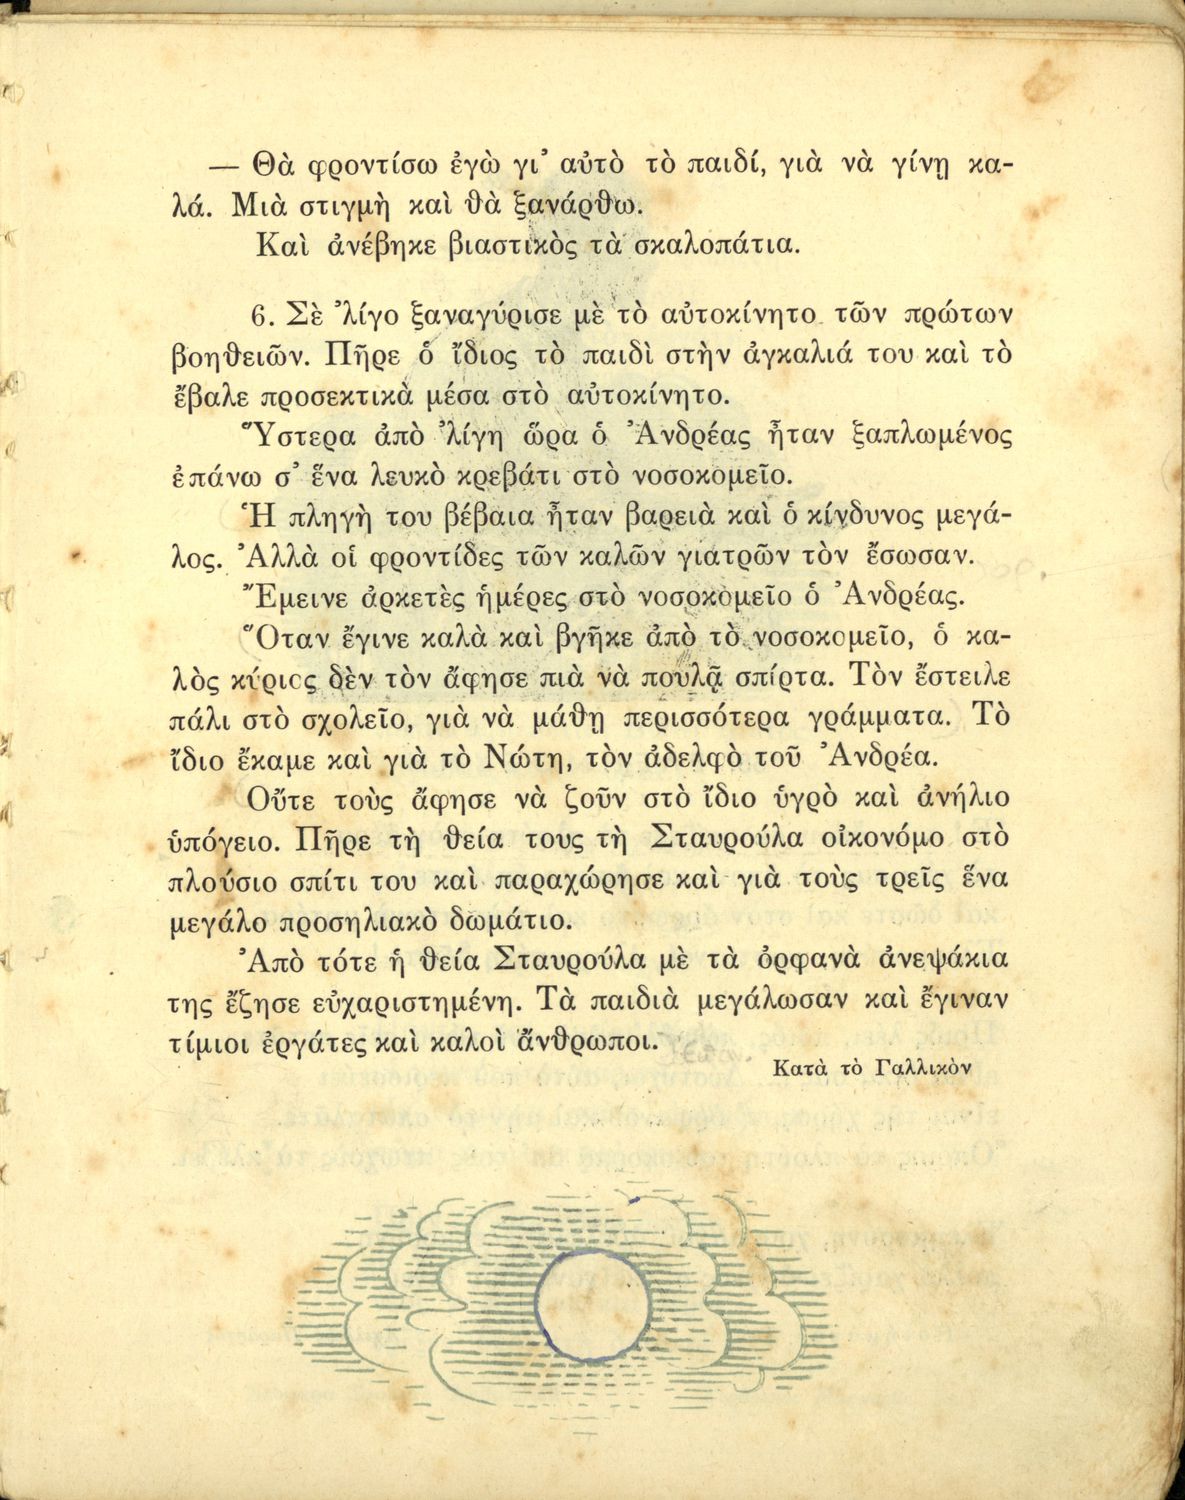 — Θὰ φροντίσω ἐγὼ γι’ αὐτὸ τὸ παιδί, γιὰ νὰ γίνῃ κα-
λά. Μιὰ στιγμὴ καὶ θὰ ξανάρθω.
Καὶ ἀνέβηκε βιαστικὸς τὰ σκαλοπάτια.
6. Σὲ ’λίγο ξαναγύρισε μὲ τὸ αὐτοκίνητο τῶν πρώτων
βοηθειῶν. Πῆρε ὁ ἴδιος τὸ παιδὶ στὴν ἀγκαλιά του καὶ τὸ
ἔβαλε προσεκτικὰ μέσα στὸ αὐτοκίνητο.
Ὕστερα ἀπὸ ’λίγη ὥρα ὁ Ἀνδρέας ἦταν ξαπλωμένος
ἐπάνω σ’ ἕνα λευκὸ κρεβάτι στὸ νοσοκομεῖο.
Ἡ πληγὴ του βέβαια ἦταν βαρειὰ καὶ ὁ κίνδυνος μεγά-
λος. Ἀλλὰ οἱ φροντίδες τῶν καλῶν γιατρῶν τὸν ἔσωσαν.
Ἔμεινε ἀρκετὲς ἡμέρες στὸ νοσοκομεῖο ὁ Ἀνδρέας.
Ὅταν ἔγινε καλὰ καὶ βγῆκε ἀπὸ τὸ νοσοκομεῖο, ὁ κα-
λὸς κύριος δὲν τὸν ἄφησε πιὰ νὰ πουλᾷ σπίρτα. Τὸν ἔστειλε
πάλι στὸ σχολεῖο, γιὰ νὰ μάθῃ περισσότερα γράμματα. Τὸ
ἴδιο ἔκαμε καὶ γιὰ τὸ Νώτη, τὸν ἀδελφὸ τοῦ Ἀνδρέα.
Οὔτε τοὺς ἄφησε νὰ ζοῦν στὸ ἴδιο ὑγρὸ καὶ ἀνήλιο
ὑπόγειο. Πῆρε τὴ θεία τους τὴ Σταυρούλα οἰκονόμο στὸ
πλούσιο σπίτι του καὶ παραχώρησε καὶ γιὰ τοὺς τρεῖς ἕνα
μεγάλο προσηλιακὸ δωμάτιο.
Ἀπὸ τότε ἡ θεία Σταυρούλα μὲ τὰ ὀρφανὰ ἀνεψάκια
της ἔζησε εὐχαριστημένη. Τὰ παιδιὰ μεγάλωσαν καὶ ἔγιναν
τίμιοι ἐργάτες καὶ καλοὶ ἄνθρωποι.
Κατὰ τὸ Γαλλικὸν